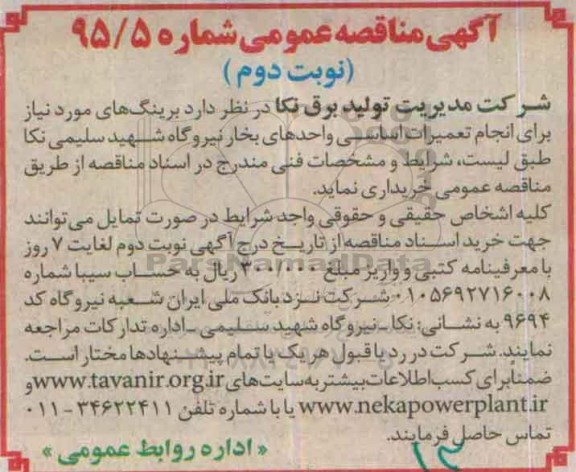 آگهی مناقصه عمومی شماره ۹۵/۵
(نوبت دوم)
شرکت مدیریت تولید برق نکا در نظر دارد برینگ‌های مورد نیاز
برای انجام تعمیرات اساسی واحدهای بخار نیروگاه شهید سلیمی نکا
طبق لیست، شرایط و مشخصات فنی مندرج در اسناد مناقصه از طریق
مناقصه عمومی خریداری نماید.
کلیه اشخاص حقیقی و حقوقی واجد شرایط در صورت تمایل می‌توانند
جهت خرید اسناد مناقصه از تاریخ درج آگهی نوبت دوم لغایت ۷ روز
با معرفینامه کتبی و واریز مبلغ ۳۰۰/۰۰۰ ریال به حساب سیبا شماره
۰۱۰۵۶۹۲۷۱۶۰۰۸ شرکت نزد بانک ملی ایران شعبه نیروگاه کد
۹۶۹۴ به نشانی: نکا ـ نیروگاه شهید سلیمی ـ اداره تدارکات مراجعه
نمایند. شرکت در رد یا قبول هر یک یا تمام پیشنهادها مختار است.
ضمنا برای کسب اطلاعات بیشتر به سایت‌های www.tavanir.org.ir و
www.nekapowerplant.ir یا با شماره تلفن ۳۴۶۲۲۴۱۱-۰۱۱
تماس حاصل فرمایند.
« اداره روابط عمومی »
ParsNamadData